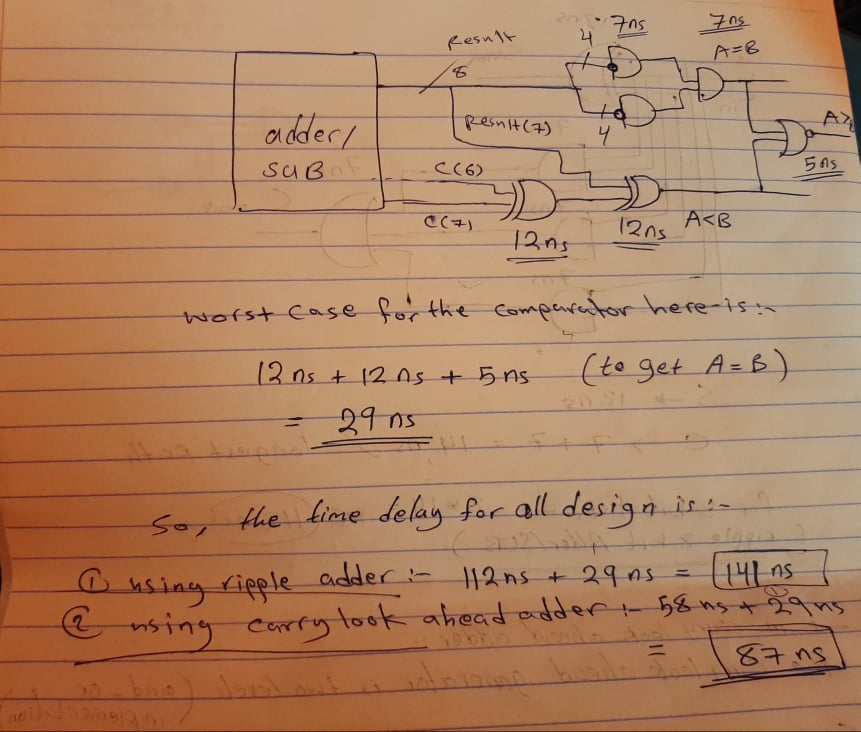 7ns
7ns
Result
4
A=B
8
adder/
SUB
Result(7)
4
A>
5ns
C(6)
C(7)
12ns
12ns
A<B
worst case for the comparator here is:-
12ns + 12ns + 5ns (to get A=B)
= 29 ns
So, the time delay for all design is :-
① using ripple adder :- 112ns + 29ns = 141 ns
② using carry look ahead adder :- 58ns + 29ns
= 87 ns